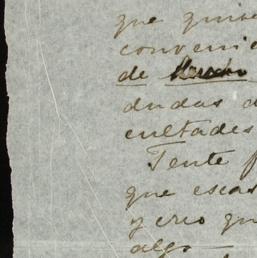 que quise
conveni
de
dudas d
cultades
Tente f
que escas
y creo qu
algo